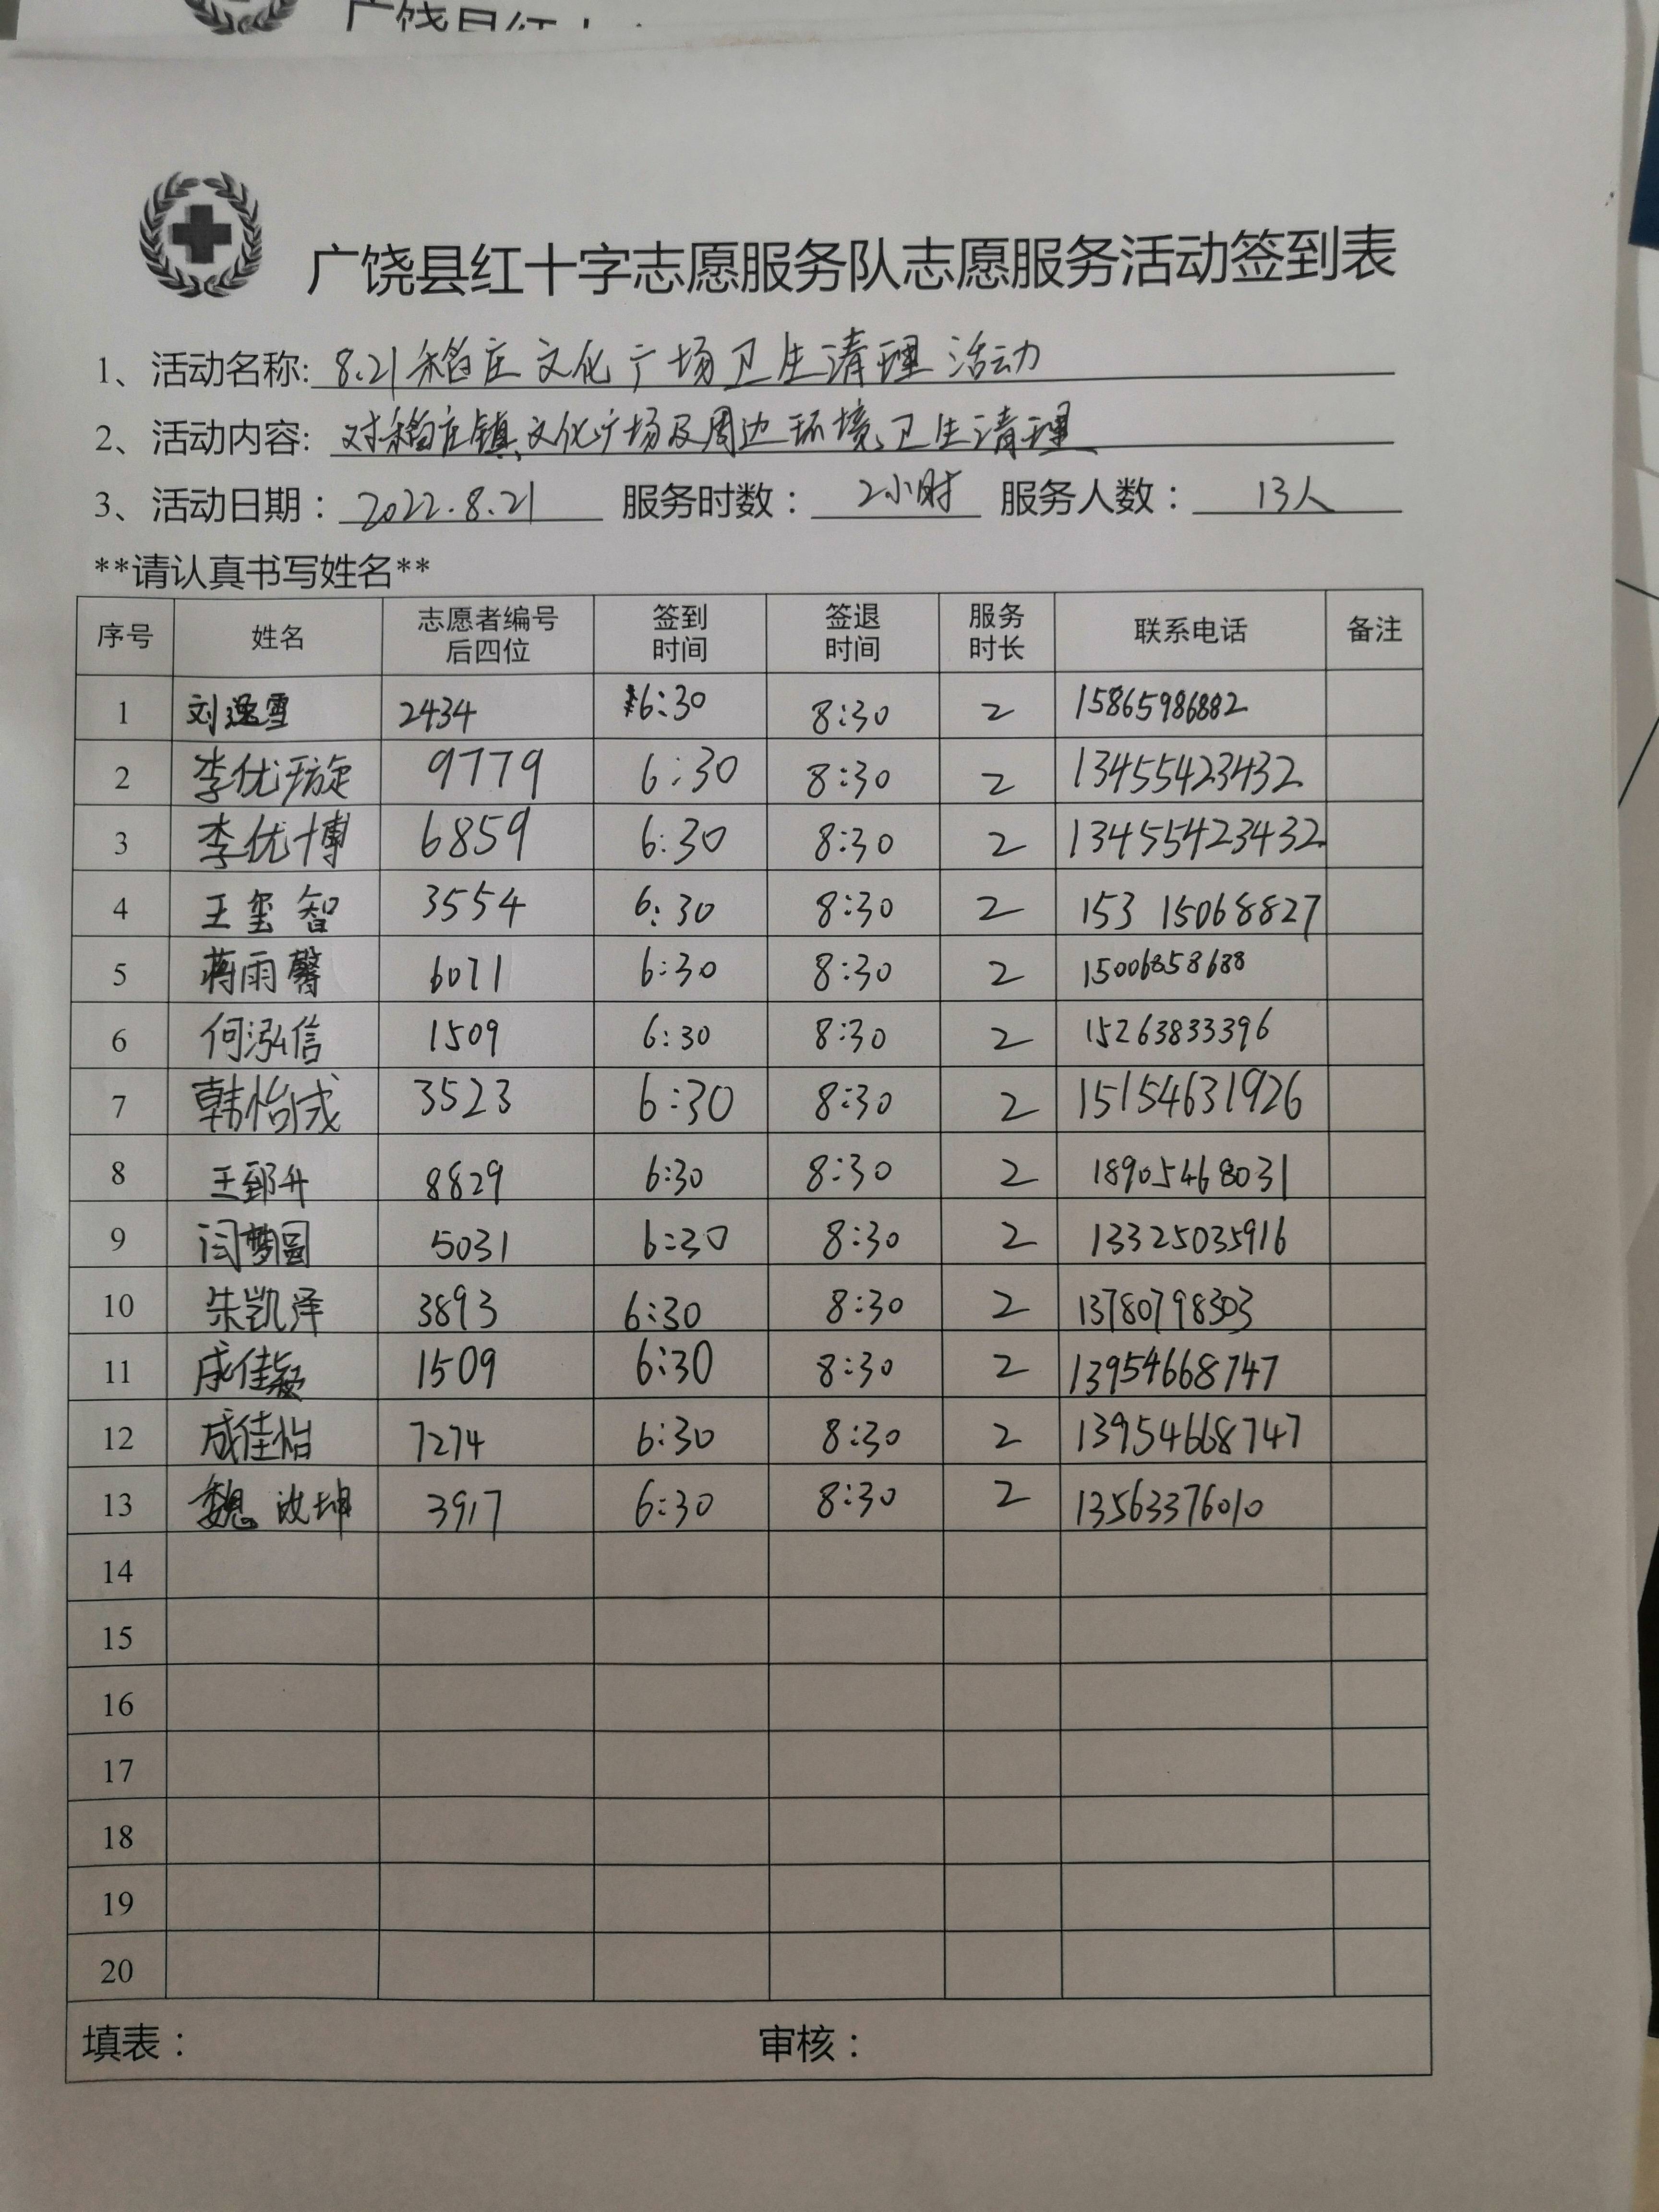 广饶县红十字志愿服务队志愿服务活动签到表
1、活动名称: 8.21稻庄文化广场卫生清理活动
2、活动内容: 对稻庄镇文化广场及周边环境卫生清理
3、活动日期: 2022.8.21 服务时数: 2小时 服务人数: 13人
**请认真书写姓名**
序号 姓名 志愿者编号后四位 签到时间 签退时间 服务时长 联系电话 备注
1 刘逸雪 2434 6:30 8:30 2 15865986882
2 李优璇 9779 6:30 8:30 2 13455423432
3 李优博 6859 6:30 8:30 2 13455423432
4 王玺智 3554 6:30 8:30 2 153 15068827
5 蒋雨馨 6071 6:30 8:30 2 15006858688
6 何泓信 1509 6:30 8:30 2 15263833396
7 韩怡成 3523 6:30 8:30 2 15154631926
8 王郅升 8829 6:30 8:30 2 18905468031
9 闫梦圆 5031 6:30 8:30 2 13325035916
10 朱凯泽 3893 6:30 8:30 2 13780798303
11 成佳颖 1509 6:30 8:30 2 13954668747
12 成佳怡 7274 6:30 8:30 2 13954668747
13 魏 坤 3917 6:30 8:30 2 13563376010
14
15
16
17
18
19
20
填表: 审核: